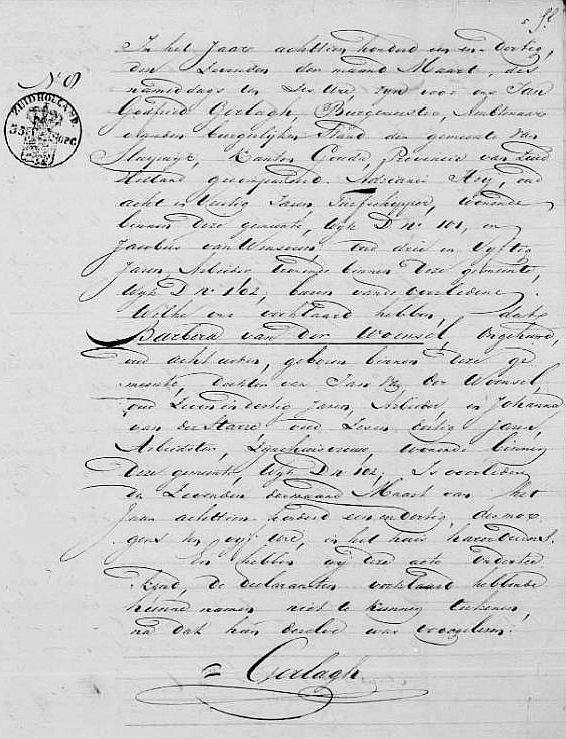 5 52
In het Jaar achttien honderd een en dertig,
den Zevenden der maand Maart, des
N 8
namiddags ten Zes Ure, zyn voor ons Jan
ZUIDHOLLAND
Godfried Gerlagh, Burgemeester, Ambtenaar
vanden burgerlyken Stand der gemeente van
Kanton Gouda, Provincie van Zuid
Holland gecompareerd. Adrianus Hey, oud
acht en Veertig Jaren, wonende
binnen deze gemeente, Wyk D No 101, en
Jacobus van oud drie en Vyftig
Jaren, Arbeider, wonende binnen deze gemeente,
Wyk D No 162, buren vande overledene.
Welke ons verklaard hebben, dat
Barbera van der Woensel, Ongehuwd,
oud acht weken, geboren binnen deze ge
meente, dochter van Jan van der Woensel,
oud Zeven en dertig Jaren, Arbeider, en Johanna
van der Starre oud Zeven dertig Jaren,
Arbeidster, Zyne huisvrouw, wonende binnen
deze gemeente, Wyk D No 162, Is overleden
den Zevenden der maand Maart van het
Jaar achttien honderd een en dertig, des mor
gens ten vyf Ure, in het huis
En hebben wy deze acte onderte
kend, de declaranten verklaard hebbende
hunne namen niet te kunnen teekenen,
na dat hun dezelve was voorgelezen.
Gerlagh